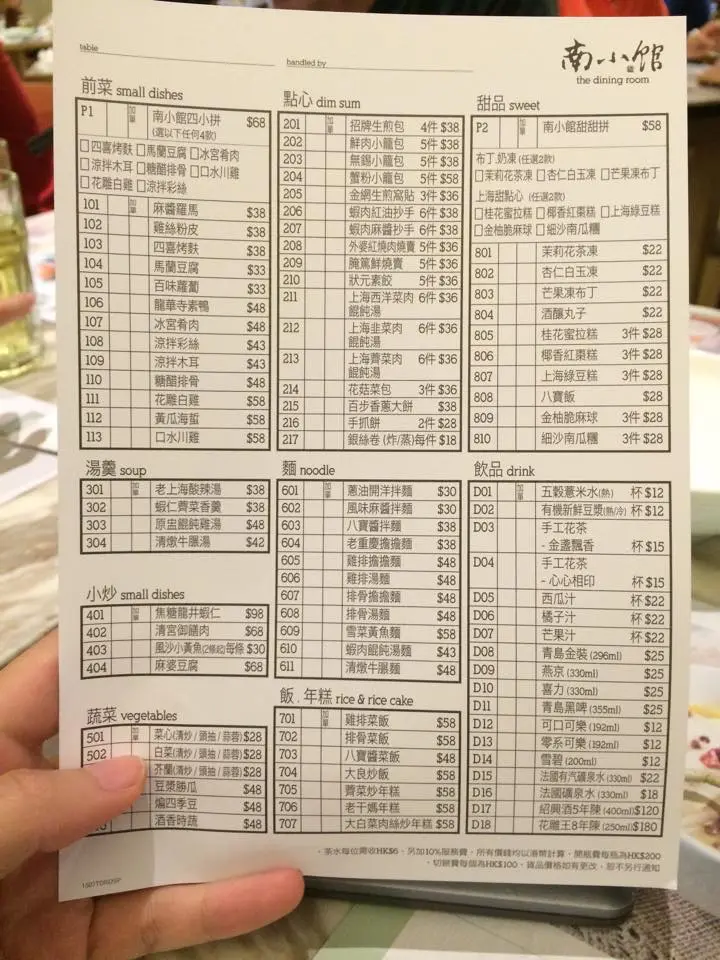 table
handled by
南小館
the dining room
前菜 small dishes
P1 加單 南小館四小拼 $68
(選以下任何4款)
四喜烤麩 馬蘭豆腐 冰宮肴肉
涼拌木耳 糖醋排骨 口水川雞
花雕白雞 涼拌彩絲
101 加單 麻醬羅馬 $38
102 雞絲粉皮 $38
103 四喜烤麩 $38
104 馬蘭豆腐 $33
105 百味蘿蔔 $33
106 龍華寺素鴨 $48
107 冰宮肴肉 $48
108 涼拌彩絲 $43
109 涼拌木耳 $43
110 糖醋排骨 $48
111 花雕白雞 $58
112 黃瓜海蜇 $58
113 口水川雞 $58
湯羹 soup
301 加單 老上海酸辣湯 $38
302 蝦仁薺菜香羹 $38
303 原盅餛飩雞湯 $48
304 清燉牛𦟌湯 $42
小炒 small dishes
401 加單 焦糖龍井蝦仁 $98
402 清宮御膳肉 $68
403 風沙小黃魚(2條起)每條 $30
404 麻婆豆腐 $68
蔬菜 vegetables
501 加單 菜心(清炒/頭抽/蒜蓉) $28
502 白菜(清炒/頭抽/蒜蓉) $28
芥蘭(清炒/頭抽/蒜蓉) $28
豆漿勝瓜 $48
煸四季豆 $48
酒香時蔬 $48
點心 dim sum
201 加單 招牌生煎包 4件 $38
202 鮮肉小籠包 5件 $38
203 無錫小籠包 5件 $38
204 蟹粉小籠包 5件 $58
205 金網生煎窩貼 3件 $36
206 蝦肉紅油抄手 6件 $38
207 蝦肉麻醬抄手 6件 $38
208 外婆紅燒肉燒賣 5件 $36
209 醃篤鮮燒賣 5件 $36
210 狀元素餃 5件 $36
211 上海西洋菜肉 6件 $36
餛飩湯
212 上海韭菜肉 6件 $36
餛飩湯
213 上海薺菜肉 6件 $36
餛飩湯
214 花菇菜包 3件 $36
215 百步香蔥大餅 $38
216 手抓餅 2件 $28
217 銀絲卷 (炸/蒸)每件 $18
麵 noodle
601 加單 蔥油開洋拌麵 $30
602 風味麻醬拌麵 $30
603 八寶醬拌麵 $38
604 老重慶擔擔麵 $38
605 雞排擔擔麵 $48
606 雞排湯麵 $48
607 排骨擔擔麵 $48
608 排骨湯麵 $48
609 雪菜黃魚麵 $58
610 蝦肉餛飩湯麵 $43
611 清燉牛𦟌麵 $48
飯．年糕 rice & rice cake
701 加單 雞排菜飯 $58
702 排骨菜飯 $58
703 八寶醬菜飯 $48
704 大良炒飯 $58
705 薺菜炒年糕 $58
706 老干媽年糕 $58
707 大白菜肉絲炒年糕 $58
甜品 sweet
P2 加單 南小館甜甜拼 $58
布丁.奶凍 (任選2款)
茉莉花茶凍 杏仁白玉凍 芒果凍布丁
上海甜點心 (任選2款)
桂花蜜拉糕 椰香紅棗糕 上海綠豆糕
金柚脆麻球 細沙南瓜糰
801 茉莉花茶凍 $22
802 杏仁白玉凍 $22
803 芒果凍布丁 $22
804 酒釀丸子 $22
805 桂花蜜拉糕 3件 $28
806 椰香紅棗糕 3件 $28
807 上海綠豆糕 3件 $28
808 八寶飯 $28
809 金柚脆麻球 3件 $28
810 細沙南瓜糰 3件 $28
飲品 drink
D01 加單 五穀薏米水(熱) 杯 $12
D02 有機新鮮豆漿(熱/冷) 杯 $12
D03 手工花茶
- 金盞飄香 杯 $15
D04 手工花茶
- 心心相印 杯 $15
D05 西瓜汁 杯 $22
D06 橘子汁 杯 $22
D07 芒果汁 杯 $22
D08 青島金裝 (296ml) $25
D09 燕京 (330ml) $25
D10 喜力 (330ml) $25
D11 青島黑啤 (355ml) $25
D12 可口可樂 (192ml) $12
D13 零系可樂 (192ml) $12
D14 雪碧 (200ml) $12
D15 法國有汽礦泉水 (330ml) $22
D16 法國礦泉水 (330ml) $18
D17 紹興酒5年陳 (400ml) $120
D18 花雕王8年陳 (250ml) $180
．茶水每位需收HK$6，另加10%服務費，所有價錢均以港幣計算，開瓶費每瓶為HK$200
．切餅費每個為HK$100，貨品價格如有更改，恕不另行通知